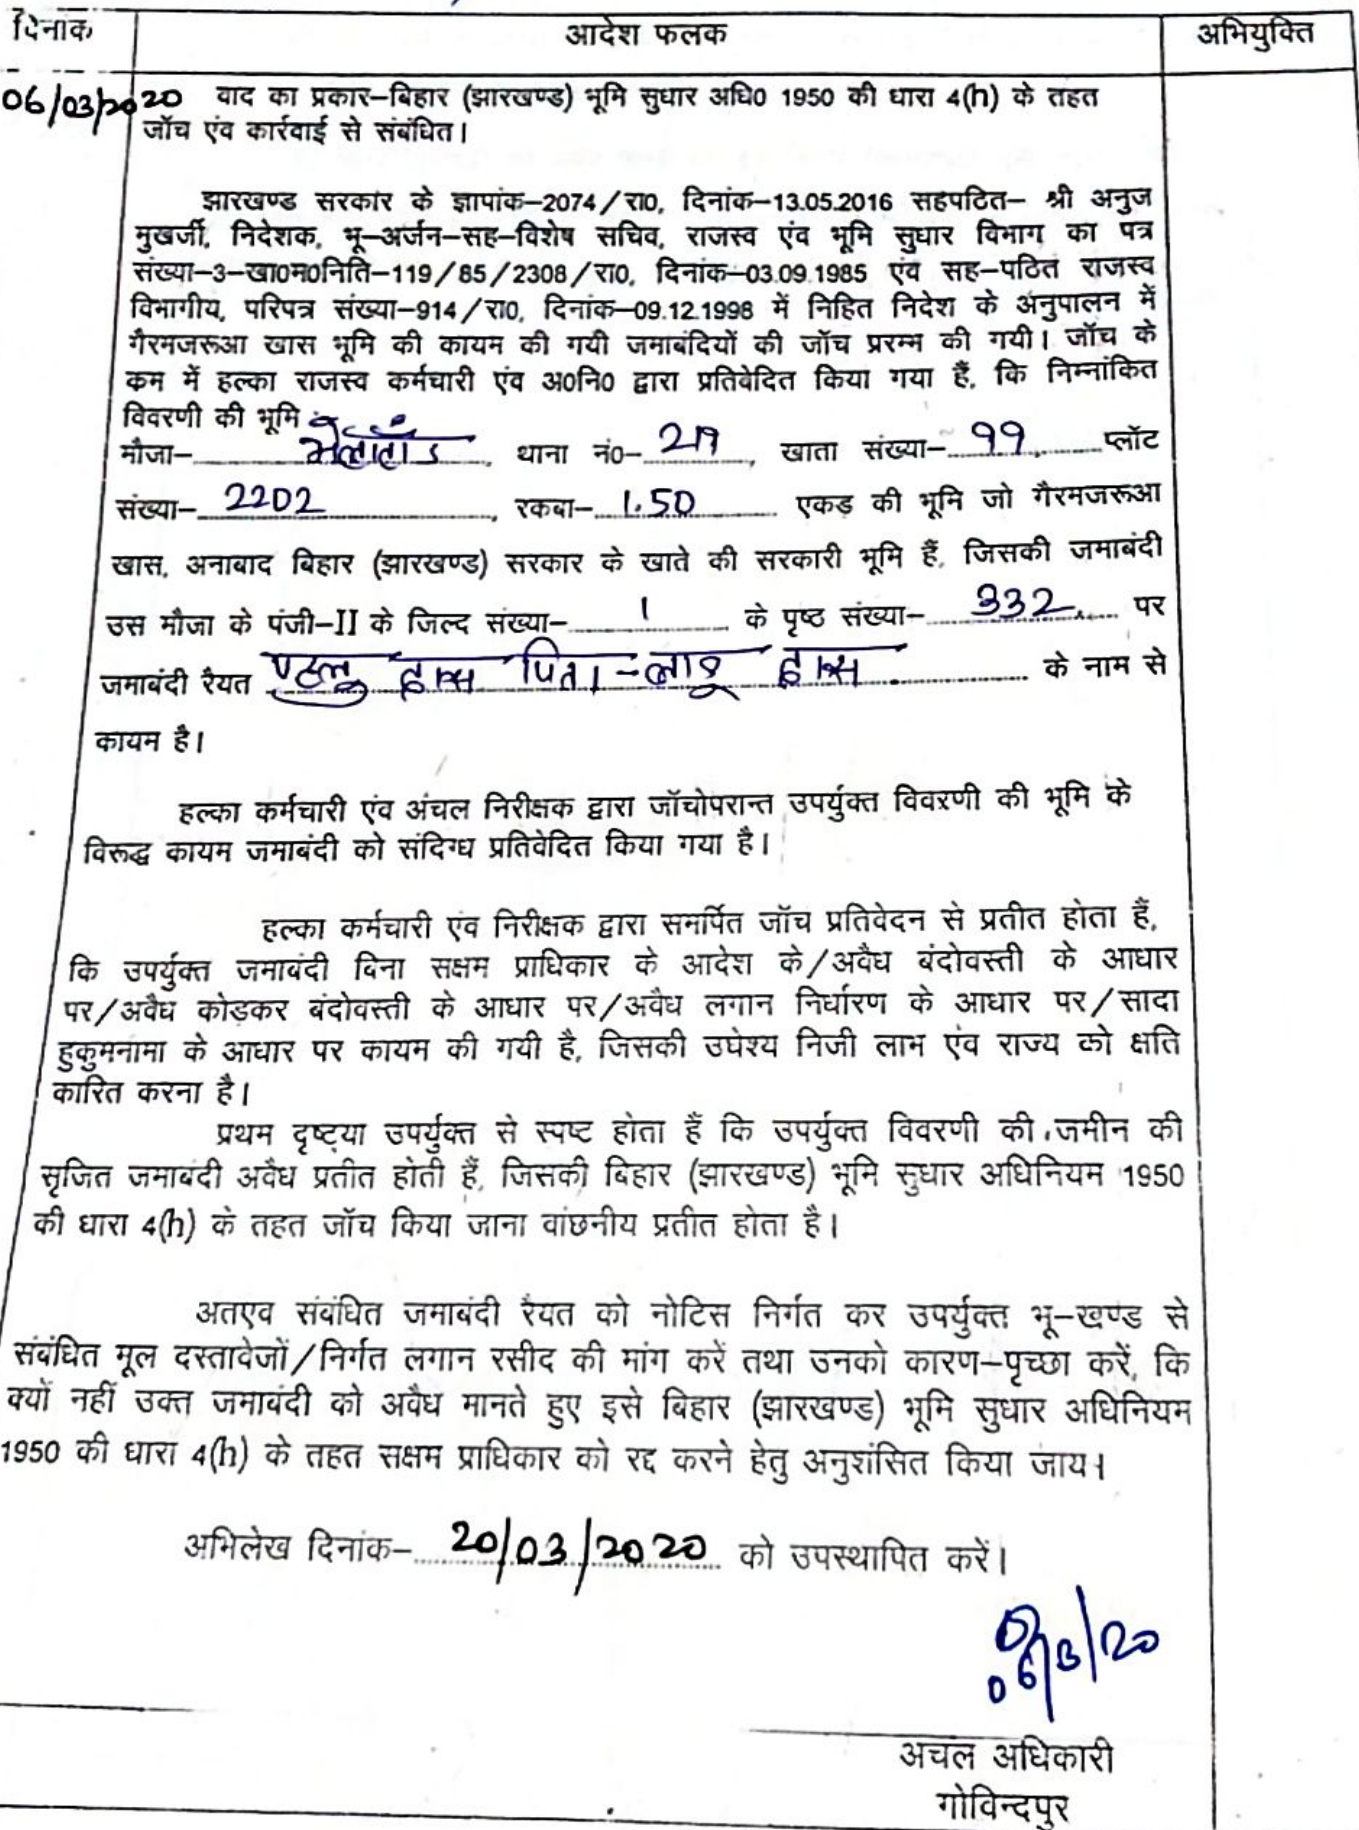 दिनांक आदेश फलक अभियुक्ति
06/03/2020 वाद का प्रकार–बिहार (झारखण्ड) भूमि सुधार अधि0 1950 की धारा 4(h) के तहत
जॉच एंव कार्रवाई से संबंधित।
झारखण्ड सरकार के ज्ञापांक–2074/रा0, दिनांक–13.05.2016 सहपठित– श्री अनुज
मुखर्जी, निदेशक, भू–अर्जन–सह–विशेष सचिव, राजस्व एंव भूमि सुधार विभाग का पत्र
संख्या–3–खा0म0निति–119/85/2308/रा0, दिनांक–03.09.1985 एंव सह–पठित राजस्व
विभागीय, परिपत्र संख्या–914/रा0, दिनांक–09.12.1998 में निहित निदेश के अनुपालन में
गैरमजरूआ खास भूमि की कायम की गयी जमाबंदियों की जॉच प्ररम्भ की गयी। जॉच के
कम में हल्का राजस्व कर्मचारी एंव अ0नि0 द्वारा प्रतिवेदित किया गया हैं, कि निम्नांकित
विवरणी की भूमि
मौजा– थाना नं0– खाता संख्या– 99 प्लॉट
संख्या– 2202, रकबा– 1.50 एकड़ की भूमि जो गैरमजरूआ
खास, अनाबाद बिहार (झारखण्ड) सरकार के खाते की सरकारी भूमि हैं, जिसकी जमाबंदी
उस मौजा के पंजी–II के जिल्द संख्या– 1 के पृष्ठ संख्या– 332 पर
जमाबंदी रैयत दास पिता – दास के नाम से
कायम है।
हल्का कर्मचारी एंव अंचल निरीक्षक द्वारा जॉचोपरान्त उपर्युक्त विवरणी की भूमि के
विरूद्ध कायम जमाबंदी को संदिग्ध प्रतिवेदित किया गया है।
हल्का कर्मचारी एंव निरीक्षक द्वारा समर्पित जॉच प्रतिवेदन से प्रतीत होता हैं,
कि उपर्युक्त जमाबंदी बिना सक्षम प्राधिकार के आदेश के/अवैध बंदोवस्ती के आधार
पर/अवैध कोडकर बंदोवस्ती के आधार पर/अवैध लगान निर्धारण के आधार पर/सादा
हुकुमनामा के आधार पर कायम की गयी है, जिसकी उघेश्य निजी लाभ एंव राज्य को क्षति
कारित करना है।
प्रथम दृष्ट्या उपर्युक्त से स्पष्ट होता हैं कि उपर्युक्त विवरणी की जमीन की
सृजित जमाबंदी अवैध प्रतीत होती हैं, जिसकी बिहार (झारखण्ड) भूमि सुधार अधिनियम 1950
की धारा 4(h) के तहत जॉच किया जाना वांछनीय प्रतीत होता है।
अतएव संबंधित जमाबंदी रैयत को नोटिस निर्गत कर उपर्युक्त भू–खण्ड से
संबंधित मूल दस्तावेजों/निर्गत लगान रसीद की मांग करें तथा उनको कारण–पृच्छा करें, कि
क्यों नहीं उक्त जमाबंदी को अवैध मानते हुए इसे बिहार (झारखण्ड) भूमि सुधार अधिनियम
1950 की धारा 4(h) के तहत सक्षम प्राधिकार को रद्द करने हेतु अनुशंसित किया जाय।
अभिलेख दिनांक– 20/03/2020 को उपस्थापित करें।
06/3/20
अचल अधिकारी
गोविन्दपुर